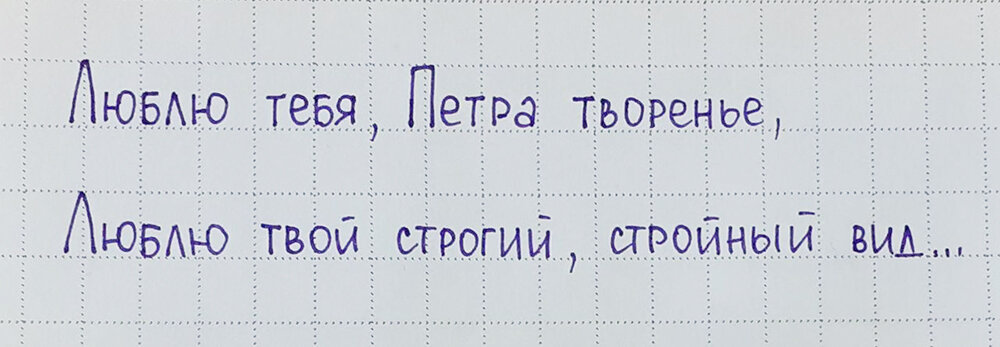 Люблю тебя, Петра творенье,
Люблю твой строгий, стройный вид...